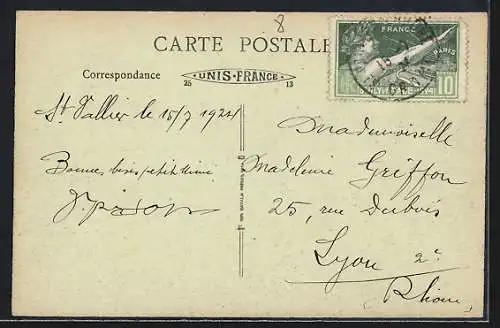 8
CARTE POSTALE
FRANCE
PARIS
10
Correspondance
UNIS-FRANCE
25 13
St Vallier le 15/7 1924
Mademoiselle
Bonnes bises petite
Madeleine Griffon
25, rue Dubois
Lyon 2e
(Rhône)